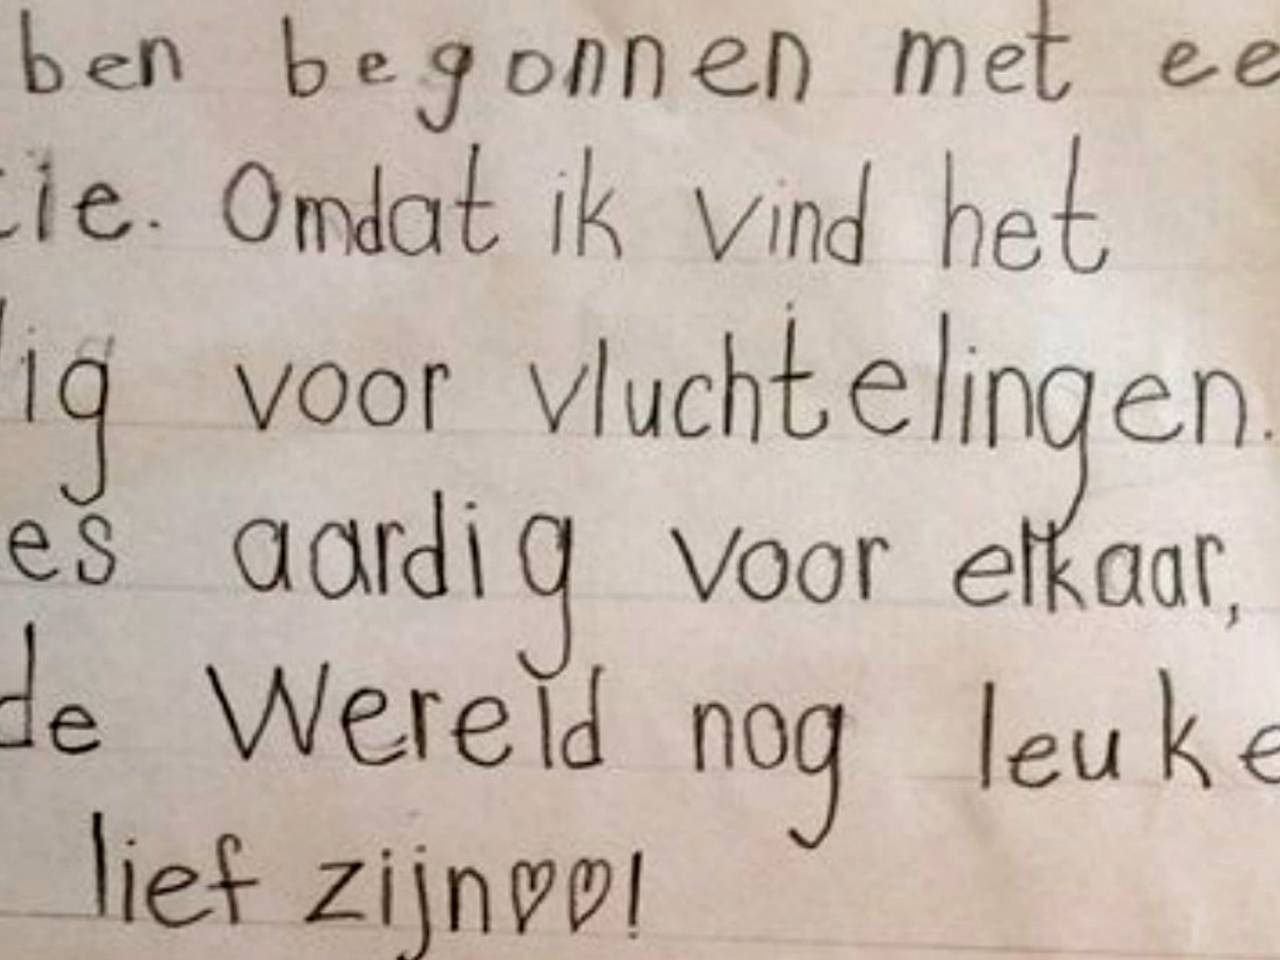 ben begonnen met ee
tie. Omdat ik vind het
ig voor vluchtelingen.
es aardig voor elkaar,
de Wereld nog leuke
lief zijn♡♡!